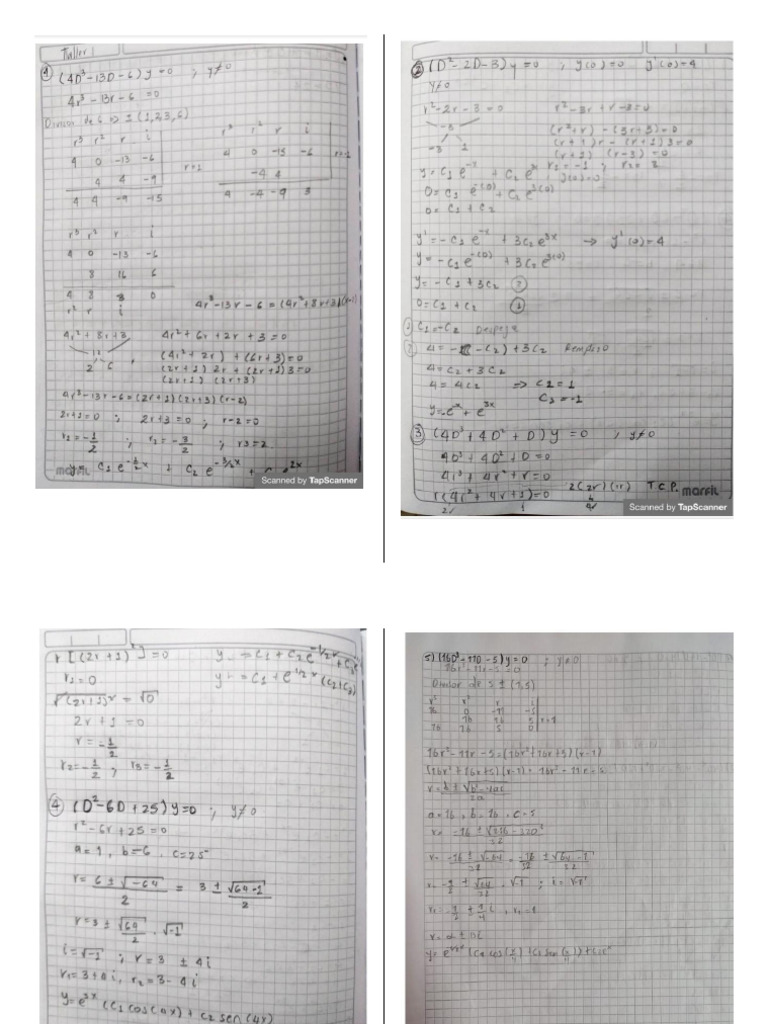 Taller
① (4D³-13D-6)y=0 ; y≠0
4r³-13r-6=0
Divisor de 6 => ± (1,2,3,6)
r³ r² r i
4 0 -13 -6
4 4 -9 r=1
4 4 -9 -15
r³ r² r i
4 0 -13 -6 r=-1
-4 4
4 -4 -9 3
r³ r² r i
4 0 -13 -6
8 16 6
4 8 3 0
r² r i
4r³-13r-6=(4r²+8r+3)
4r²+8r+3
2 6
4r²+6r+2r+3=0
(4r²+2r)+(6r+3)=0
(2r+1)2r+(2r+1)3=0
(2r+1)(2r+3)
4r³-13r-6=(2r+1)(2r+3)(r-2)
2r+1=0 ; 2r+3=0 ; r-2=0
r₁=-1/2 ; r₂=-3/2 ; r₃=2
y= C₁e^-1/2x + C₂e^-3/2x + e^2x
marfil
Scanned by TapScanner
② (D²-2D-3)y=0 ; y(0)=0 y'(0)=4
y≠0
r²-2r-3=0
-3
-3 1
r²-3r+r-3=0
(r²+r)-(3r+3)=0
(r+1)r-(r+1)3=0
(r+1)(r-3)=0
r₁=-1 ; r₂=3
y=C₁e^-x + C₂e^3x y(0)=0
0=C₁e^-(0)+C₂e^3(0)
0=C₁+C₂
y'=-C₁e^-x + 3C₂e^3x → y'(0)=4
y=-C₁e^-(0) + 3C₂e^3(0)
y=-C₁+3C₂ ②
0=C₁+C₂ ①
① C₁=-C₂ Despeje
② 4=-(-C₂)+3C₂ Remplazo
4=C₂+3C₂
4=4C₂ => C₂=1
C₁=-1
y=-e^-x+e^3x
③ (4D³+4D²+D)y=0 ; y≠0
4D³+4D²+D=0
4r³+4r²+r=0
r(4r²+4r+1)=0 2(2r)(1) T.C.P.
2r 1 4r
marfil
Scanned by TapScanner
r[(2r+1)²]=0
r₁=0
√(2r+1)²=√0
2r+1=0
r=-1/2
r₂=-1/2 ; r₃=-1/2
y=C₁+C₂e^-1/2x
y=C₁+e^1/2x(C₂+C₃
④ (D²-6D+25)y=0 ; y≠0
r²-6r+25=0
a=1, b=-6, c=25
r=6±√-64/2 = 3±√64·-1/2
r=3±√64/2 . √-1
i=√-1 ; r=3 ± 4i
r₁=3+4i, r₂=3-4i
y=e^3x(C₁cos(4x)+C₂sen(4x)
5) (16D³-11D-5)y=0 ; y≠0
16r³-11r-5=0
Divisor de 5 ± (1,5)
r³ r² r i
16 0 -11 -5
16 16 5 r=1
16 16 5 0
16r³-11r-5=(16r²+16r+5)(r-1)
(16r²+16r+5)(r-1)=16r³-11r-5
a=16, b=16, c=5
r=-16±√256-320